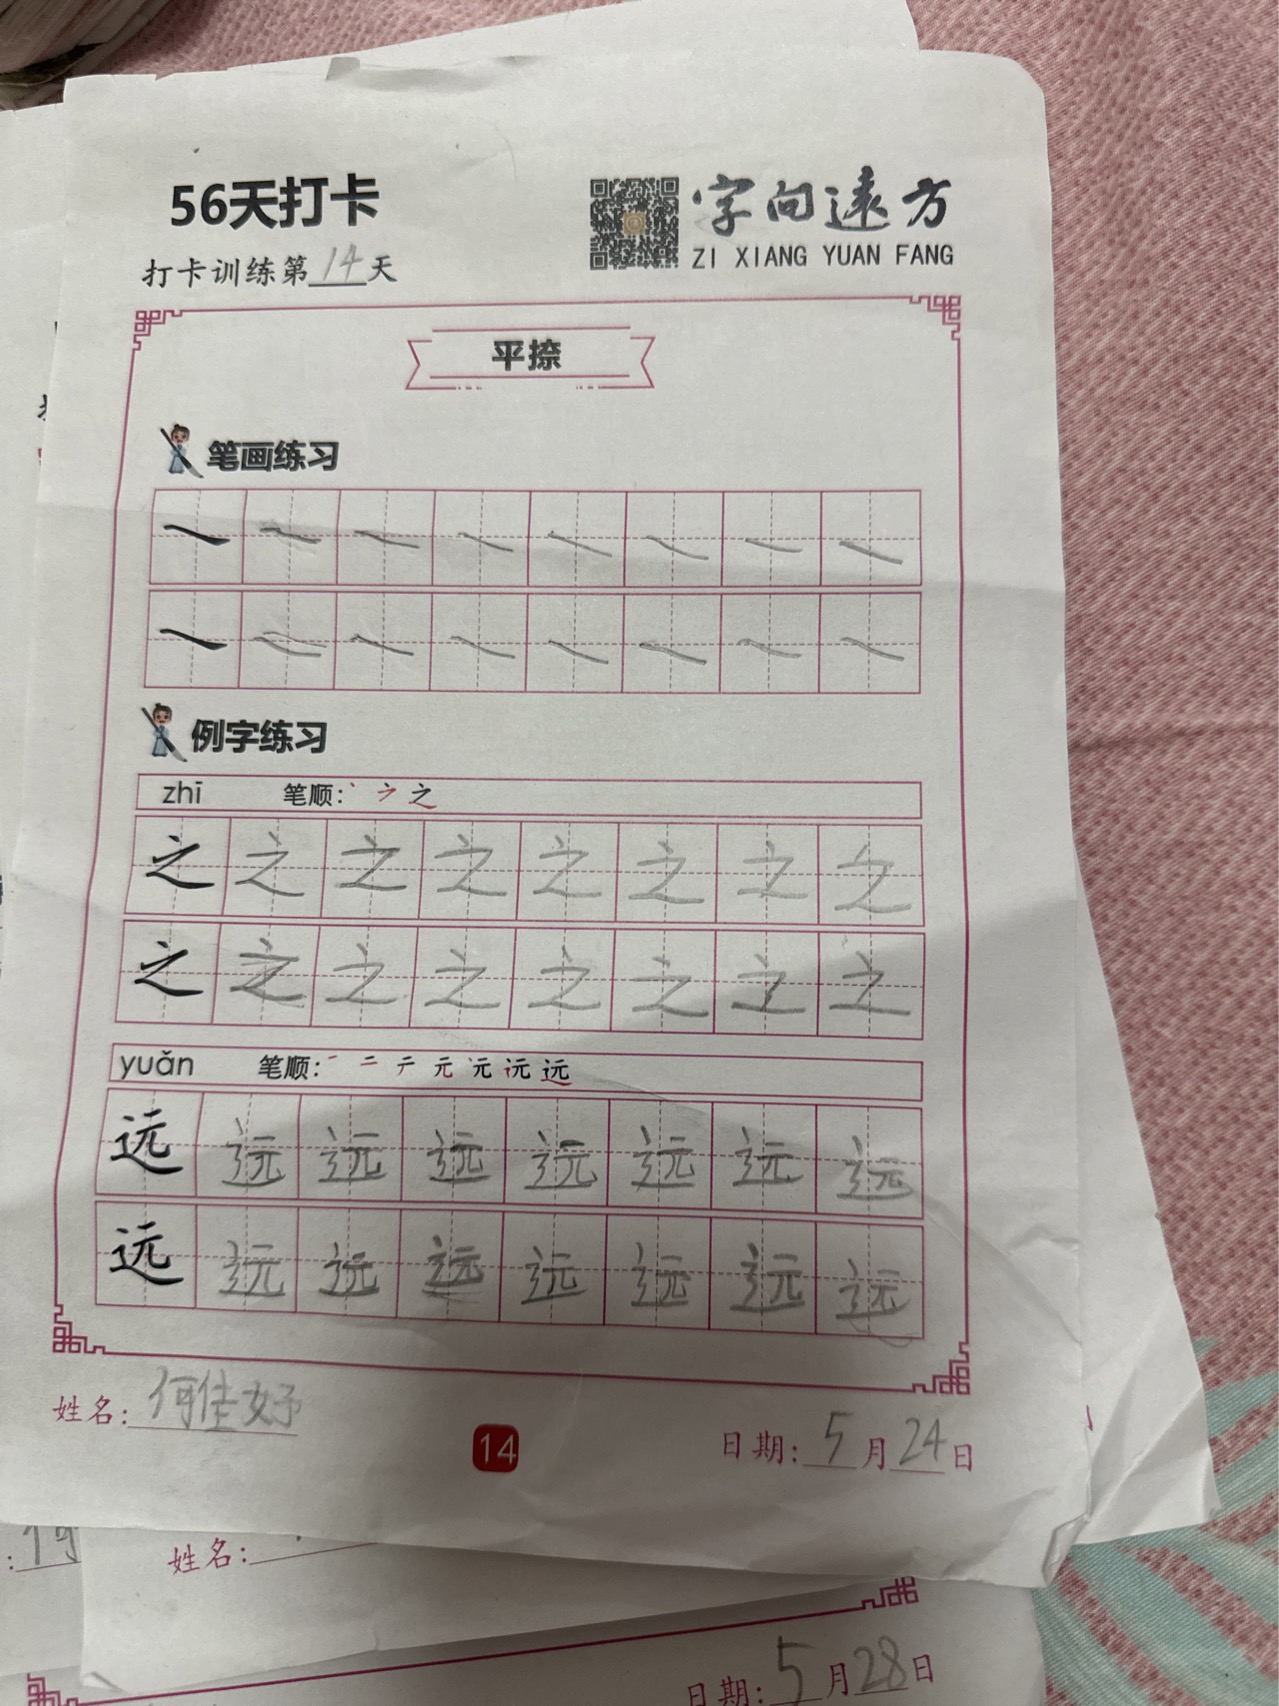 56天打卡
打卡训练第14天
字向遠方
ZI XIANG YUAN FANG
平捺
笔画练习
例字练习
zhī 笔顺: 丶 之
之 之 之 之 之 之 之 之
之 之 之 之 之 之 之 之
yuǎn 笔顺: 一 二 テ 元 元 远 远
远 远 远 远 远 远 远 远
远 远 远 远 远 远 远 远
姓名: 何佳好
14
日期: 5月24日
: 何
姓名:
日期: 5月28日